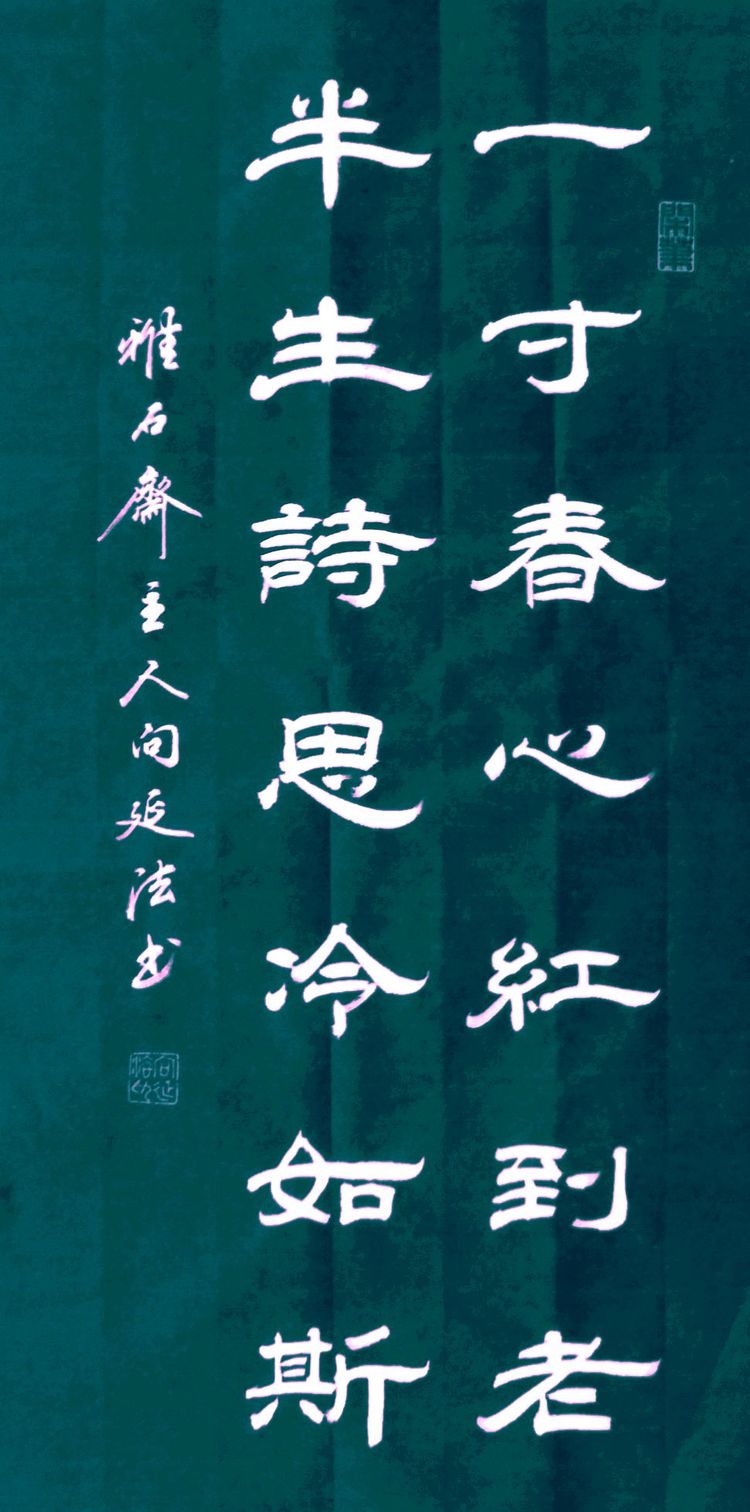 一寸春心紅到老
半生詩思冷如斯
雅石齋主人向延法书